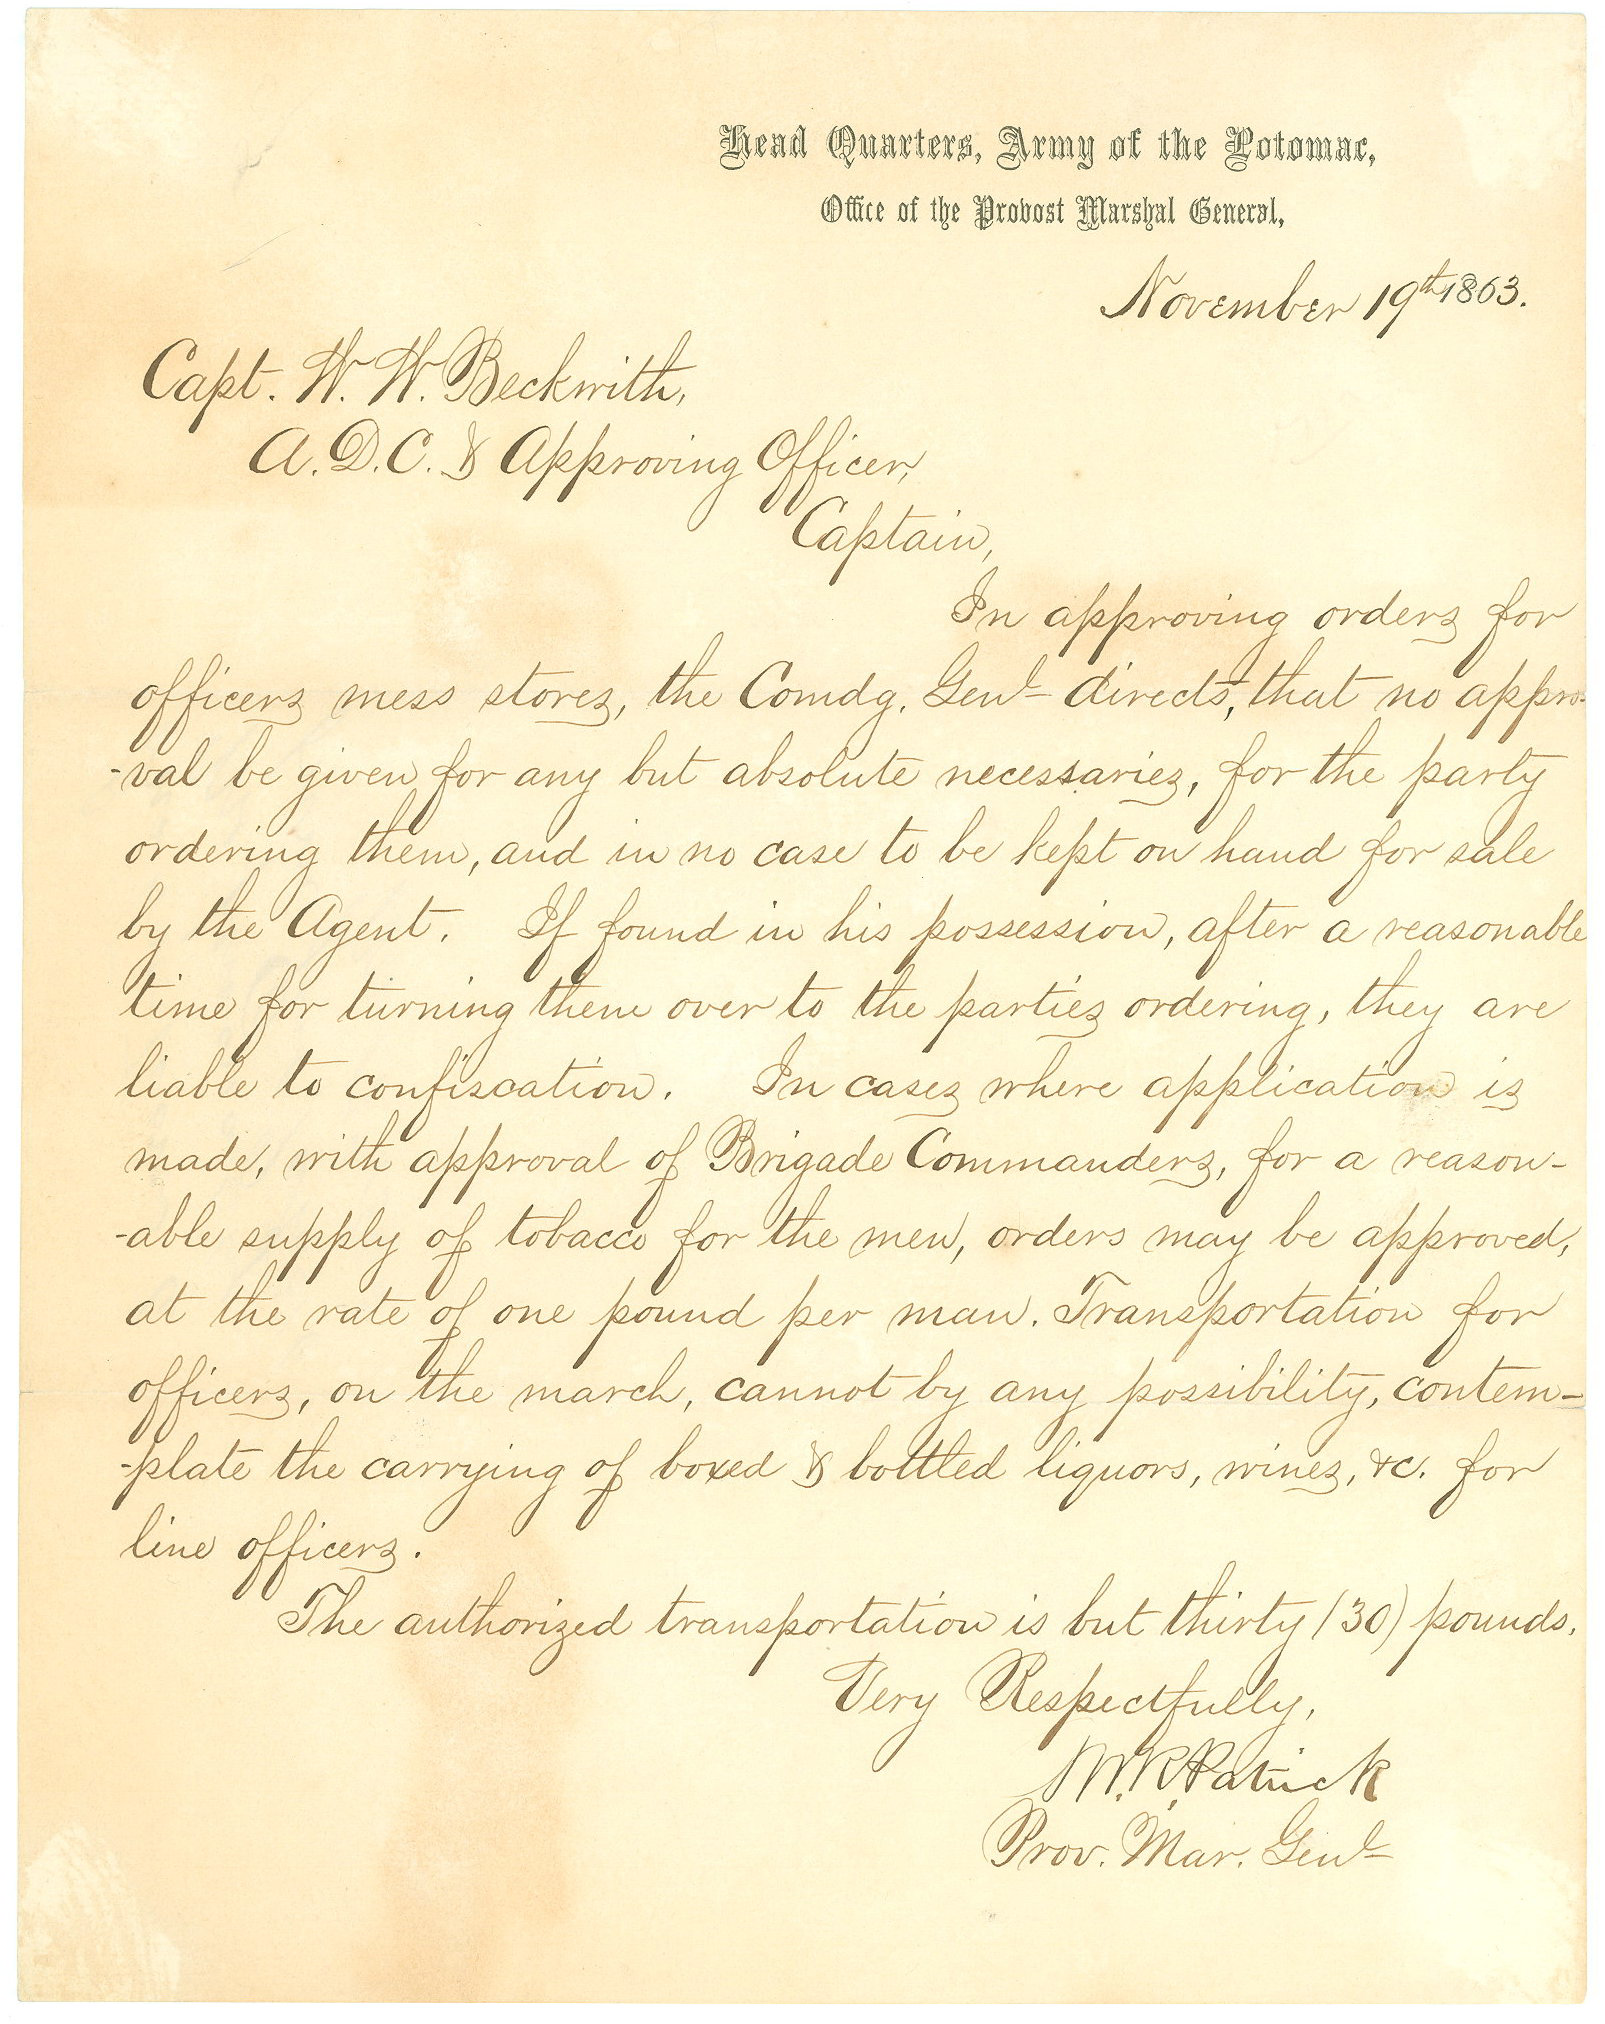 Head Quarters, Army of the Potomac,
Office of the Provost Marshal General,
November 19th 1863.
Capt. W. W. Beckwith,
A.D.C. & Approving Officer,
Captain,
In approving orders for
officers mess stores, the Comdg. Genl directs, that no appro-
-val be given for any but absolute necessaries, for the party
ordering them, and in no case to be kept on hand for sale
by the Agent. If found in his possession, after a reasonable
time for turning them over to the parties ordering, they are
liable to confiscation. In cases where application is
made, with approval of Brigade Commanders, for a reason-
-able supply of tobacco for the men, orders may be approved,
at the rate of one pound per man. Transportation for
officers, on the march, cannot by any possibility, contem-
-plate the carrying of boxed & bottled liquors, wines, &c. for
line officers.
The authorized transportation is but thirty (30) pounds.
Very Respectfully,
M. R. Patrick
Prov. Mar. Genl